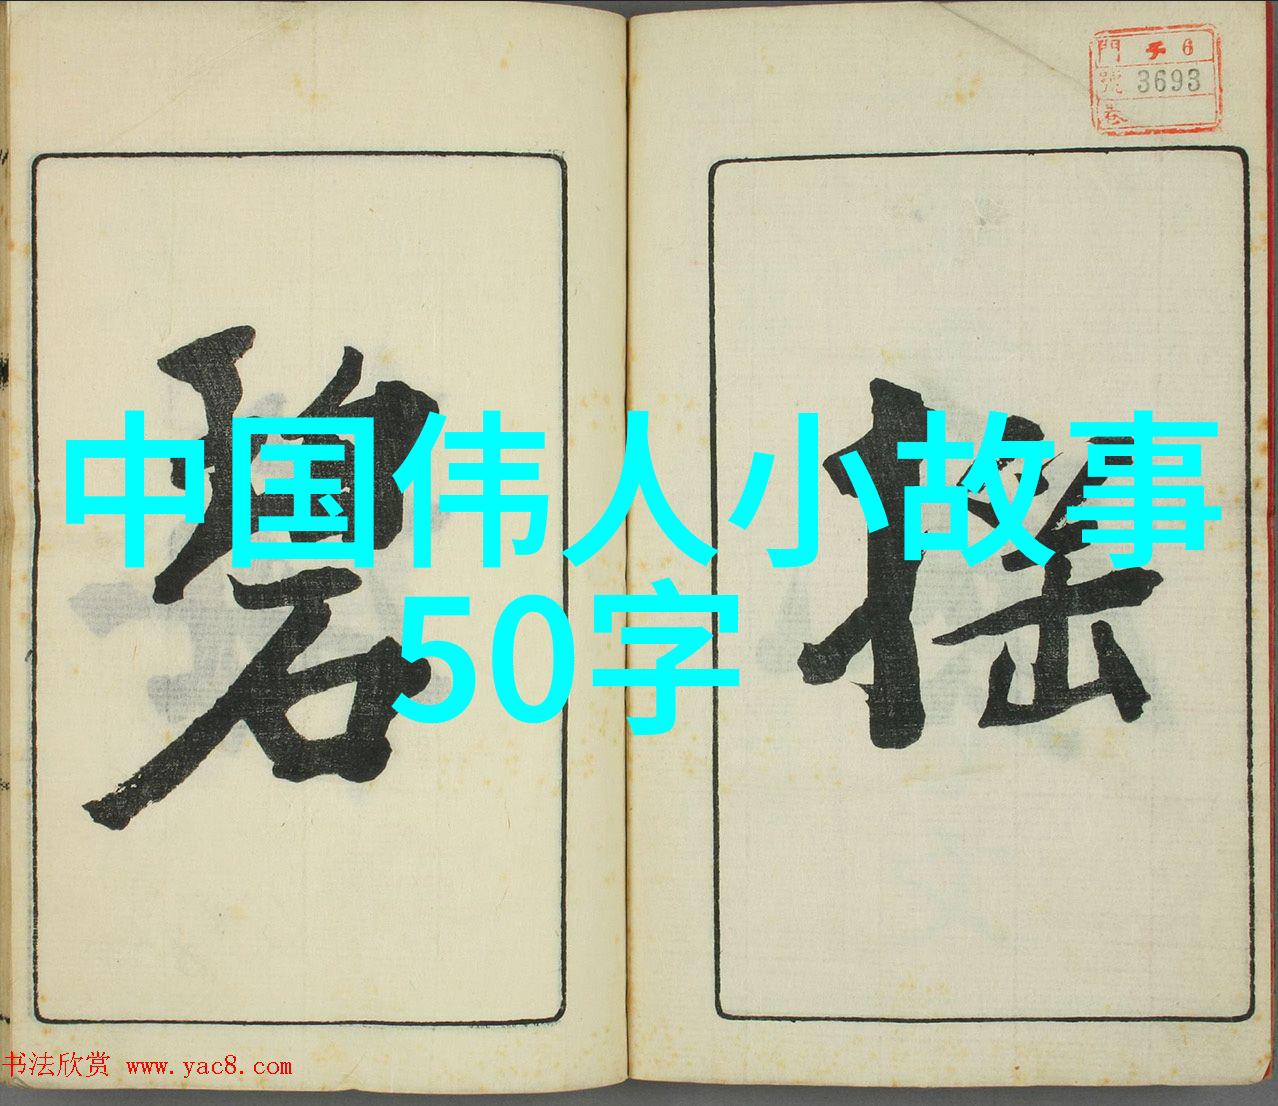 門 6
號 3693
卷
搖
碧
中国伟人小故事
50字
书法欣赏 www.yac8.com